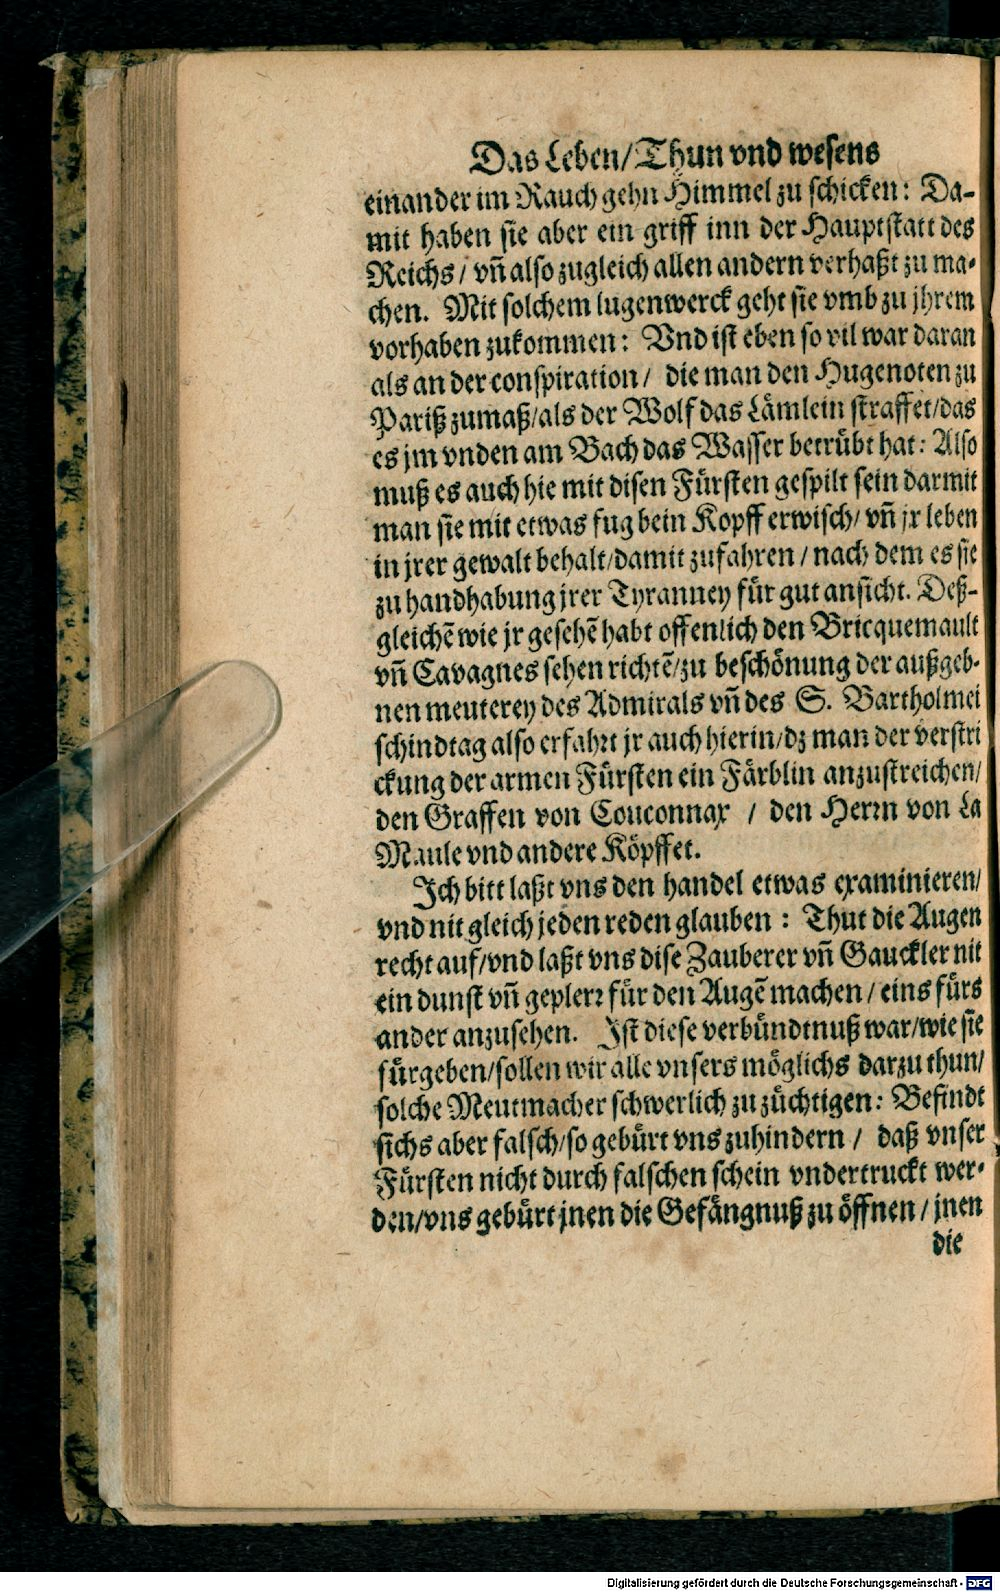 Das Leben/Thun vnd wesens
einander im Rauch gehn Himmel zu schicken: Da-
mit haben sie aber ein griff inn der Hauptstatt des
Reichs/ vñ also zugleich allen andern verhaßt zu ma-
chen. Mit solchem lugenwerck geht sie vmb zu jhrem
vorhaben zukommen: Vnd ist eben so vil war daran
als an der conspiration/ die man den Hugenoten zu
Pariß zumaß/als der Wolf das Lämlein straffet/das
es jm vnden am Bach das Wasser betrübt hat: Also
muß es auch hie mit disen Fürsten gespilt sein darmit
man sie mit etwas fug bein Kopff erwisch/ vñ jr leben
in jrer gewalt behalt/damit zufahren/ nach dem es sie
zu handhabung jrer Tyranney für gut ansicht. Deß-
gleichẽ wie jr gesehẽ habt offenlich den Bricquemault
vñ Cavagnes sehen richtẽ/zu beschönung der außgeb-
nen meuterey des Admirals vñ des S. Bartholmei
schindtag also erfahrt jr auch hierin/dz man der verstri
ckung der armen Fürsten ein Färblin anzustreichen/
den Graffen von Couconnax / den Herrn von La
Maule vnd andere Köpffet.
Ich bitt laßt vns den handel etwas examinieren/
vnd nit gleich jeden reden glauben: Thut die Augen
recht auf/vnd laßt vns dise Zauberer vñ Gauckler nit
ein dunst vñ geplerr für den Augẽ machen/ eins fürs
ander anzusehen. Ist diese verbündtnuß war/wie sie
fürgeben/sollen wir alle vnsers möglichs darzu thun/
solche Meutmacher schwerlich zu züchtigen: Befindt
sichs aber falsch/so gebürt vns zuhindern/ daß vnser
Fürsten nicht durch falschen schein vndertruckt wer-
den/vns gebürt jnen die Gefängnuß zu öffnen/ jnen
die
Digitalisierung gefördert durch die Deutsche Forschungsgemeinschaft - DFG